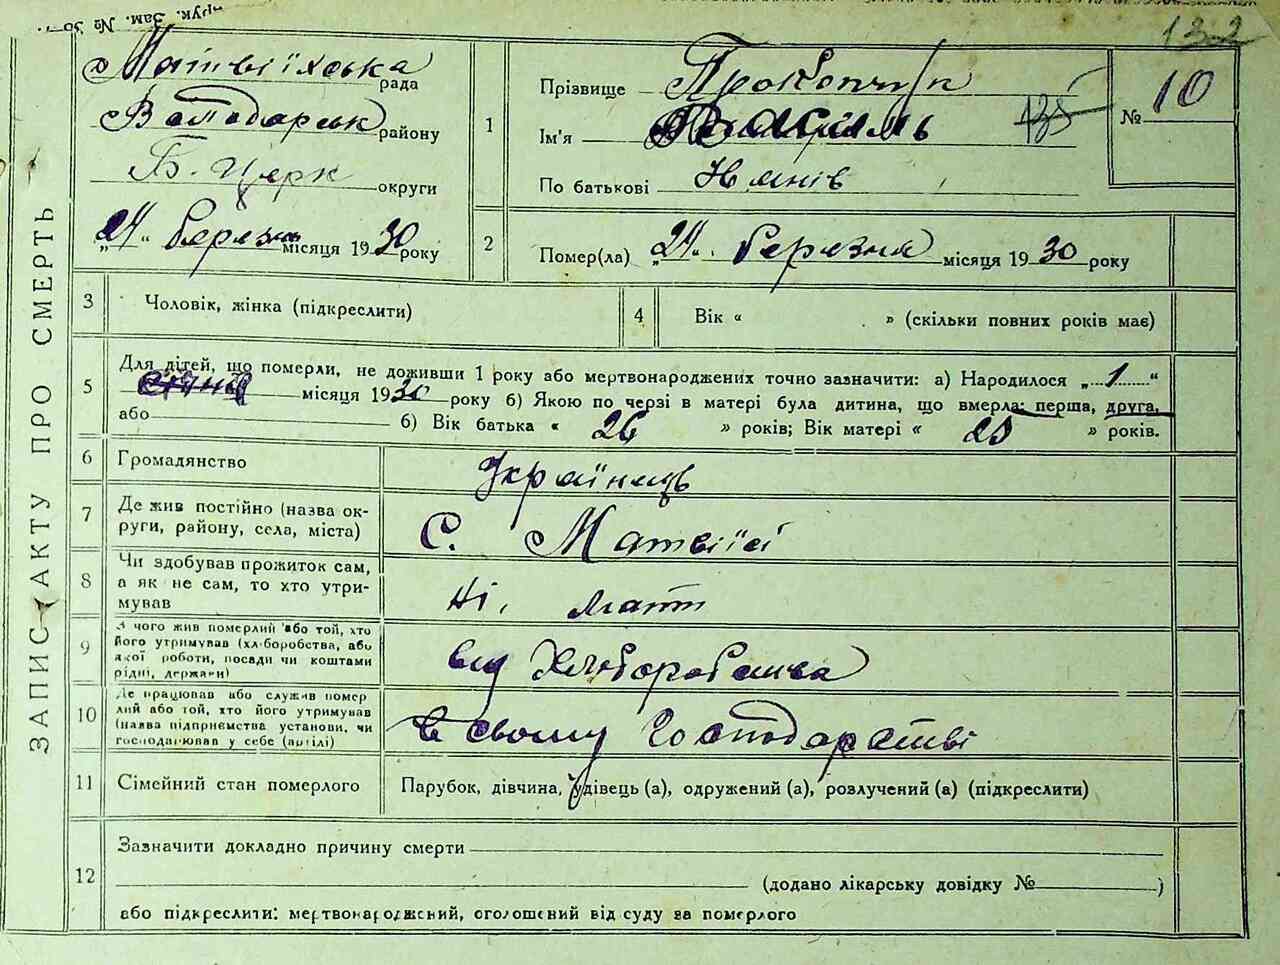 13-2
Матвіїхська рада
Володарськ району
Б. Церк округи
„24“ березня місяця 1930 року
ЗАПИС АКТУ ПРО СМЕРТЬ
1
Прізвище Прокопчук
Ім'я
По батькові
№ 10
2
Помер(ла) „24“ березня місяця 1930 року
3 Чоловік, жінка (підкреслити)
4 Вік « » (скільки повних років має)
5 Для дітей, що померли, не доживши 1 року або мертвонароджених точно зазначити: а) Народилося „ 1 “
січня місяця 1930 року б) Якою по черзі в матері була дитина, що вмерла: перша, друга,
або б) Вік батька « 26 » років; Вік матері « » років.
6 Громадянство Українець
7 Де жив постійно (назва ок-
руги, району, села, міста) С. Матвіїсі
8 Чи здобував прожиток сам,
а як не сам, то хто утри-
мував Ні, мати
9 З чого жив померлий або той, хто
його утримував (хліборобства, або
якої роботи, посади чи коштами
рідні, держави) від Хліборобства
10 Де працював або служив помер
лий або той, хто його утримував
(назва підприємства установи, чи
господарював у себе (артілі) в свому Господарстві
11 Сімейний стан померлого Парубок, дівчина, удівець (а), одружений (а), розлучений (а) (підкреслити)
12 Зазначити докладно причину смерти
(додано лікарську довідку № )
або підкреслити: мертвонароджений, оголошений від суду за померлого